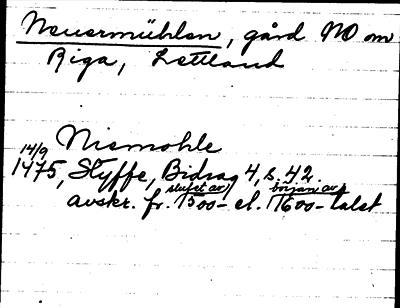 Neuermühlen, gård NO om
Riga, Lettland
14/9 Niemohle
1475, Styffe, Bidrag 4, s. 42.
slutet av början av
avskr. fr. 1500- el. 1600-talet